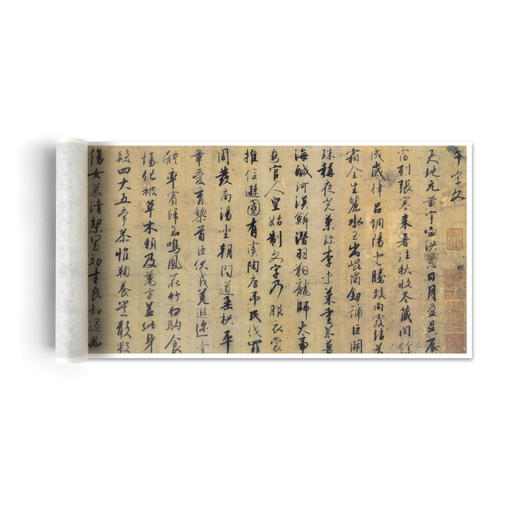 千字文
天地元黃宇宙洪荒日月盈昃辰
宿列張寒来暑往秋收冬藏閏餘
成歲律呂調陽雲騰致雨露結為
霜金生麗水玉出崐崗劍號巨闕
珠稱夜光菓珍李柰菜重芥薑
海鹹河淡鱗潛羽翔龍師火帝
鳥官人皇始制文字乃服衣裳
推位遜國有虞陶唐弔民伐罪
周發商湯坐朝問道垂拱平
章愛育黎首臣伏戎羌遐邇壹
體率賓歸王鳴鳳在竹白駒食
場化被草木賴及萬方蓋此身
髮四大五常恭惟鞠養豈敢毀
傷女慕清潔男効才良知過必